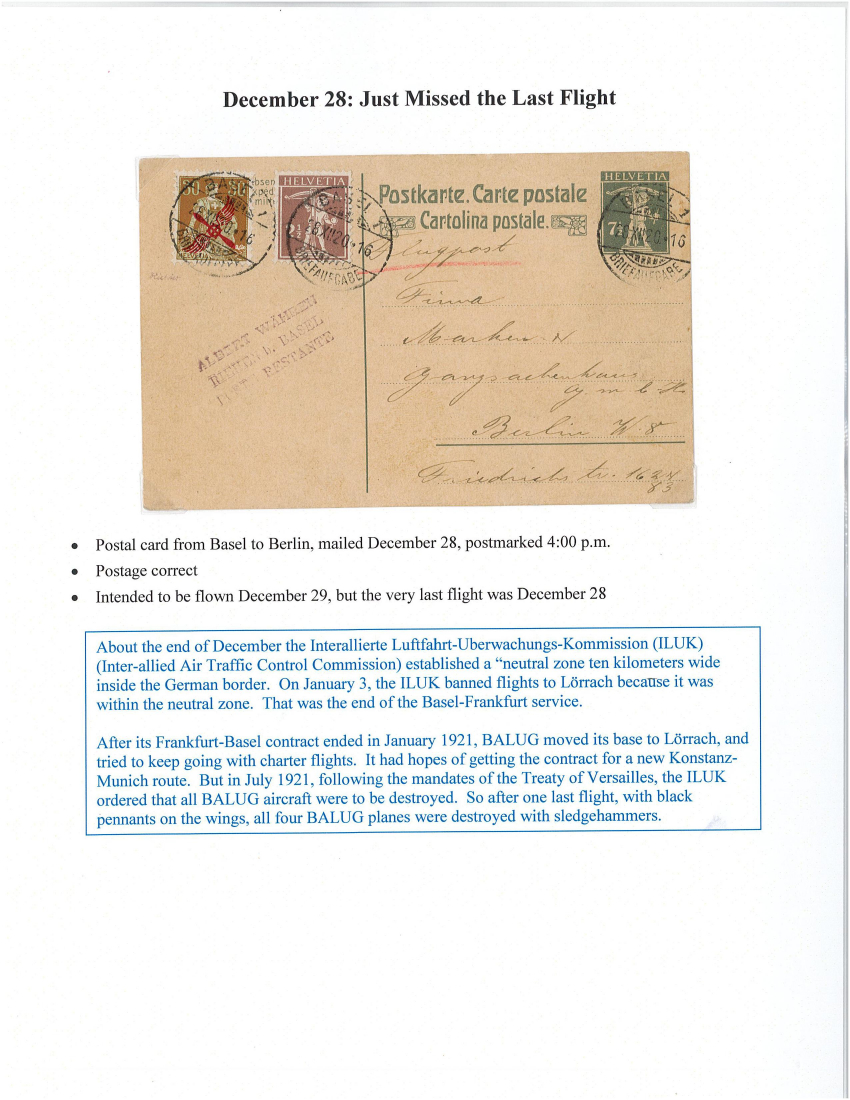 December 28: Just Missed the Last Flight
30
HELVETIA
2½
BASEL 1
28.XII.20.-16
BRIEFAUFGABE
Postkarte. Carte postale
Cartolina postale.
HELVETIA
7½
BASEL 1
28.XII.20.-16
BRIEFAUFGABE
Flugpost
Firma
Marken &
Ganzsachenhaus
G m b H
Berlin W. 8
Friedrichstr. 162
ALBERT WAHREN
RIEHEN b. BASEL
RESTANTE
• Postal card from Basel to Berlin, mailed December 28, postmarked 4:00 p.m.
• Postage correct
• Intended to be flown December 29, but the very last flight was December 28
About the end of December the Interallierte Luftfahrt-Uberwachungs-Kommission (ILUK)
(Inter-allied Air Traffic Control Commission) established a “neutral zone ten kilometers wide
inside the German border. On January 3, the ILUK banned flights to Lörrach because it was
within the neutral zone. That was the end of the Basel-Frankfurt service.
After its Frankfurt-Basel contract ended in January 1921, BALUG moved its base to Lörrach, and
tried to keep going with charter flights. It had hopes of getting the contract for a new Konstanz-
Munich route. But in July 1921, following the mandates of the Treaty of Versailles, the ILUK
ordered that all BALUG aircraft were to be destroyed. So after one last flight, with black
pennants on the wings, all four BALUG planes were destroyed with sledgehammers.